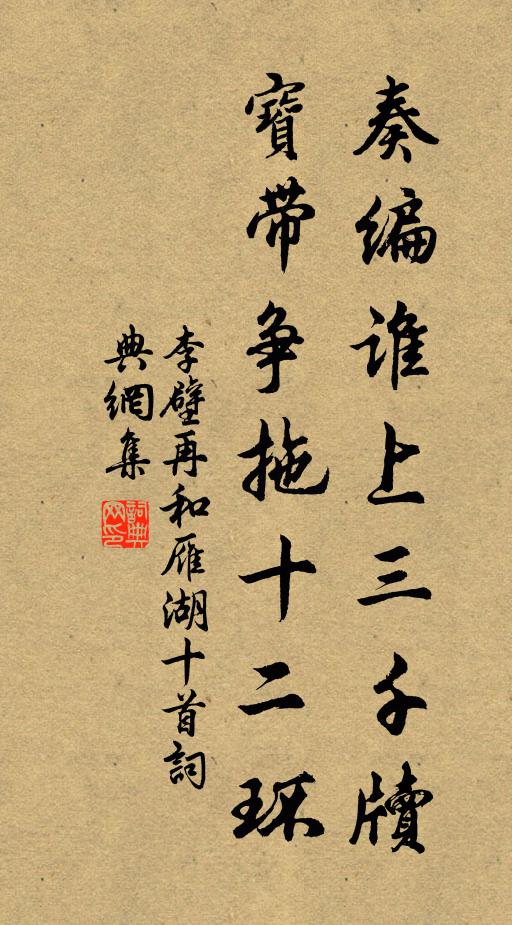 奏编谁上三千牘
寶帶争拖十二环
李壁再和雁湖十首詞
典網集
詞典
网印